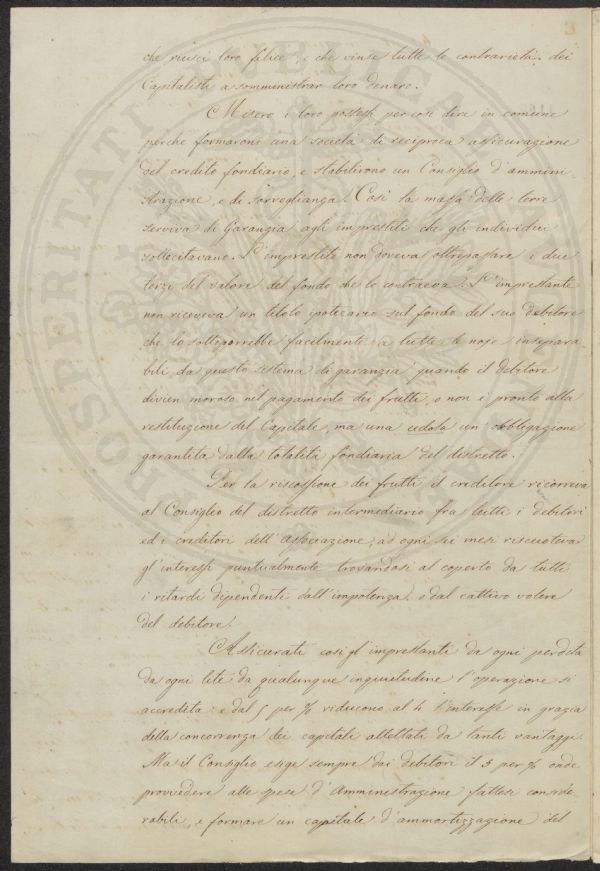 che riuscì loro felice, e che vinse tutte le contrarietà dei
Capitalisti a somministrar loro denaro.
Misero i loro possessi per così dire in comune
perche formarono una società di reciproca assicurazione
del credito fondiario, e stabilirono un Consiglio d'ammini-
strazione, e di sorveglianza. Così la massa delle terre
serviva di Garanzia agli imprestiti che gli individui
sollecitavano. L'imprestito non doveva oltrepassare i due
terzi del valore del fondo che lo contraeva. L'imprestante
non riceveva un titolo ipotecario sul fondo del suo debitore
che lo sottoporrebbe facilmente a tutte le noje insepara-
bili da questo sistema di garanzia quando il debitore
divien moroso nel pagamento dei frutti, o non è pronto alla
restituzione del Capitale, ma una cedola un' obbligazione
garantita dalla totalità fondiaria del distretto.
Per la riscossione dei frutti il creditore ricorreva
al Consiglio del distretto intermediario fra tutti i debitori
ed i creditori dell' Associazione; ad ogni sei mesi riscuoteva
gl'interessi puntualmente trovandosi al coperto da tutti
i ritardi dipendenti dall'impotenza, o dal cattivo volere
del debitore.
Assicurati così gl'imprestanti da ogni perdita
da ogni lite da qualunque inquietudine l'operazione si
accredita, e dal 5 per % riducono al 4 l'interesse in grazia
della concorrenza dei capitali allettati da tanti vantaggi.
Ma il Consiglio esige sempre dai debitori il 5 per % onde
provvedere alle spese d'Amministrazione fattesi conside-
rabili, e formare un capitale d'ammortizzazione del
PROSPERITATI PUBLICAE